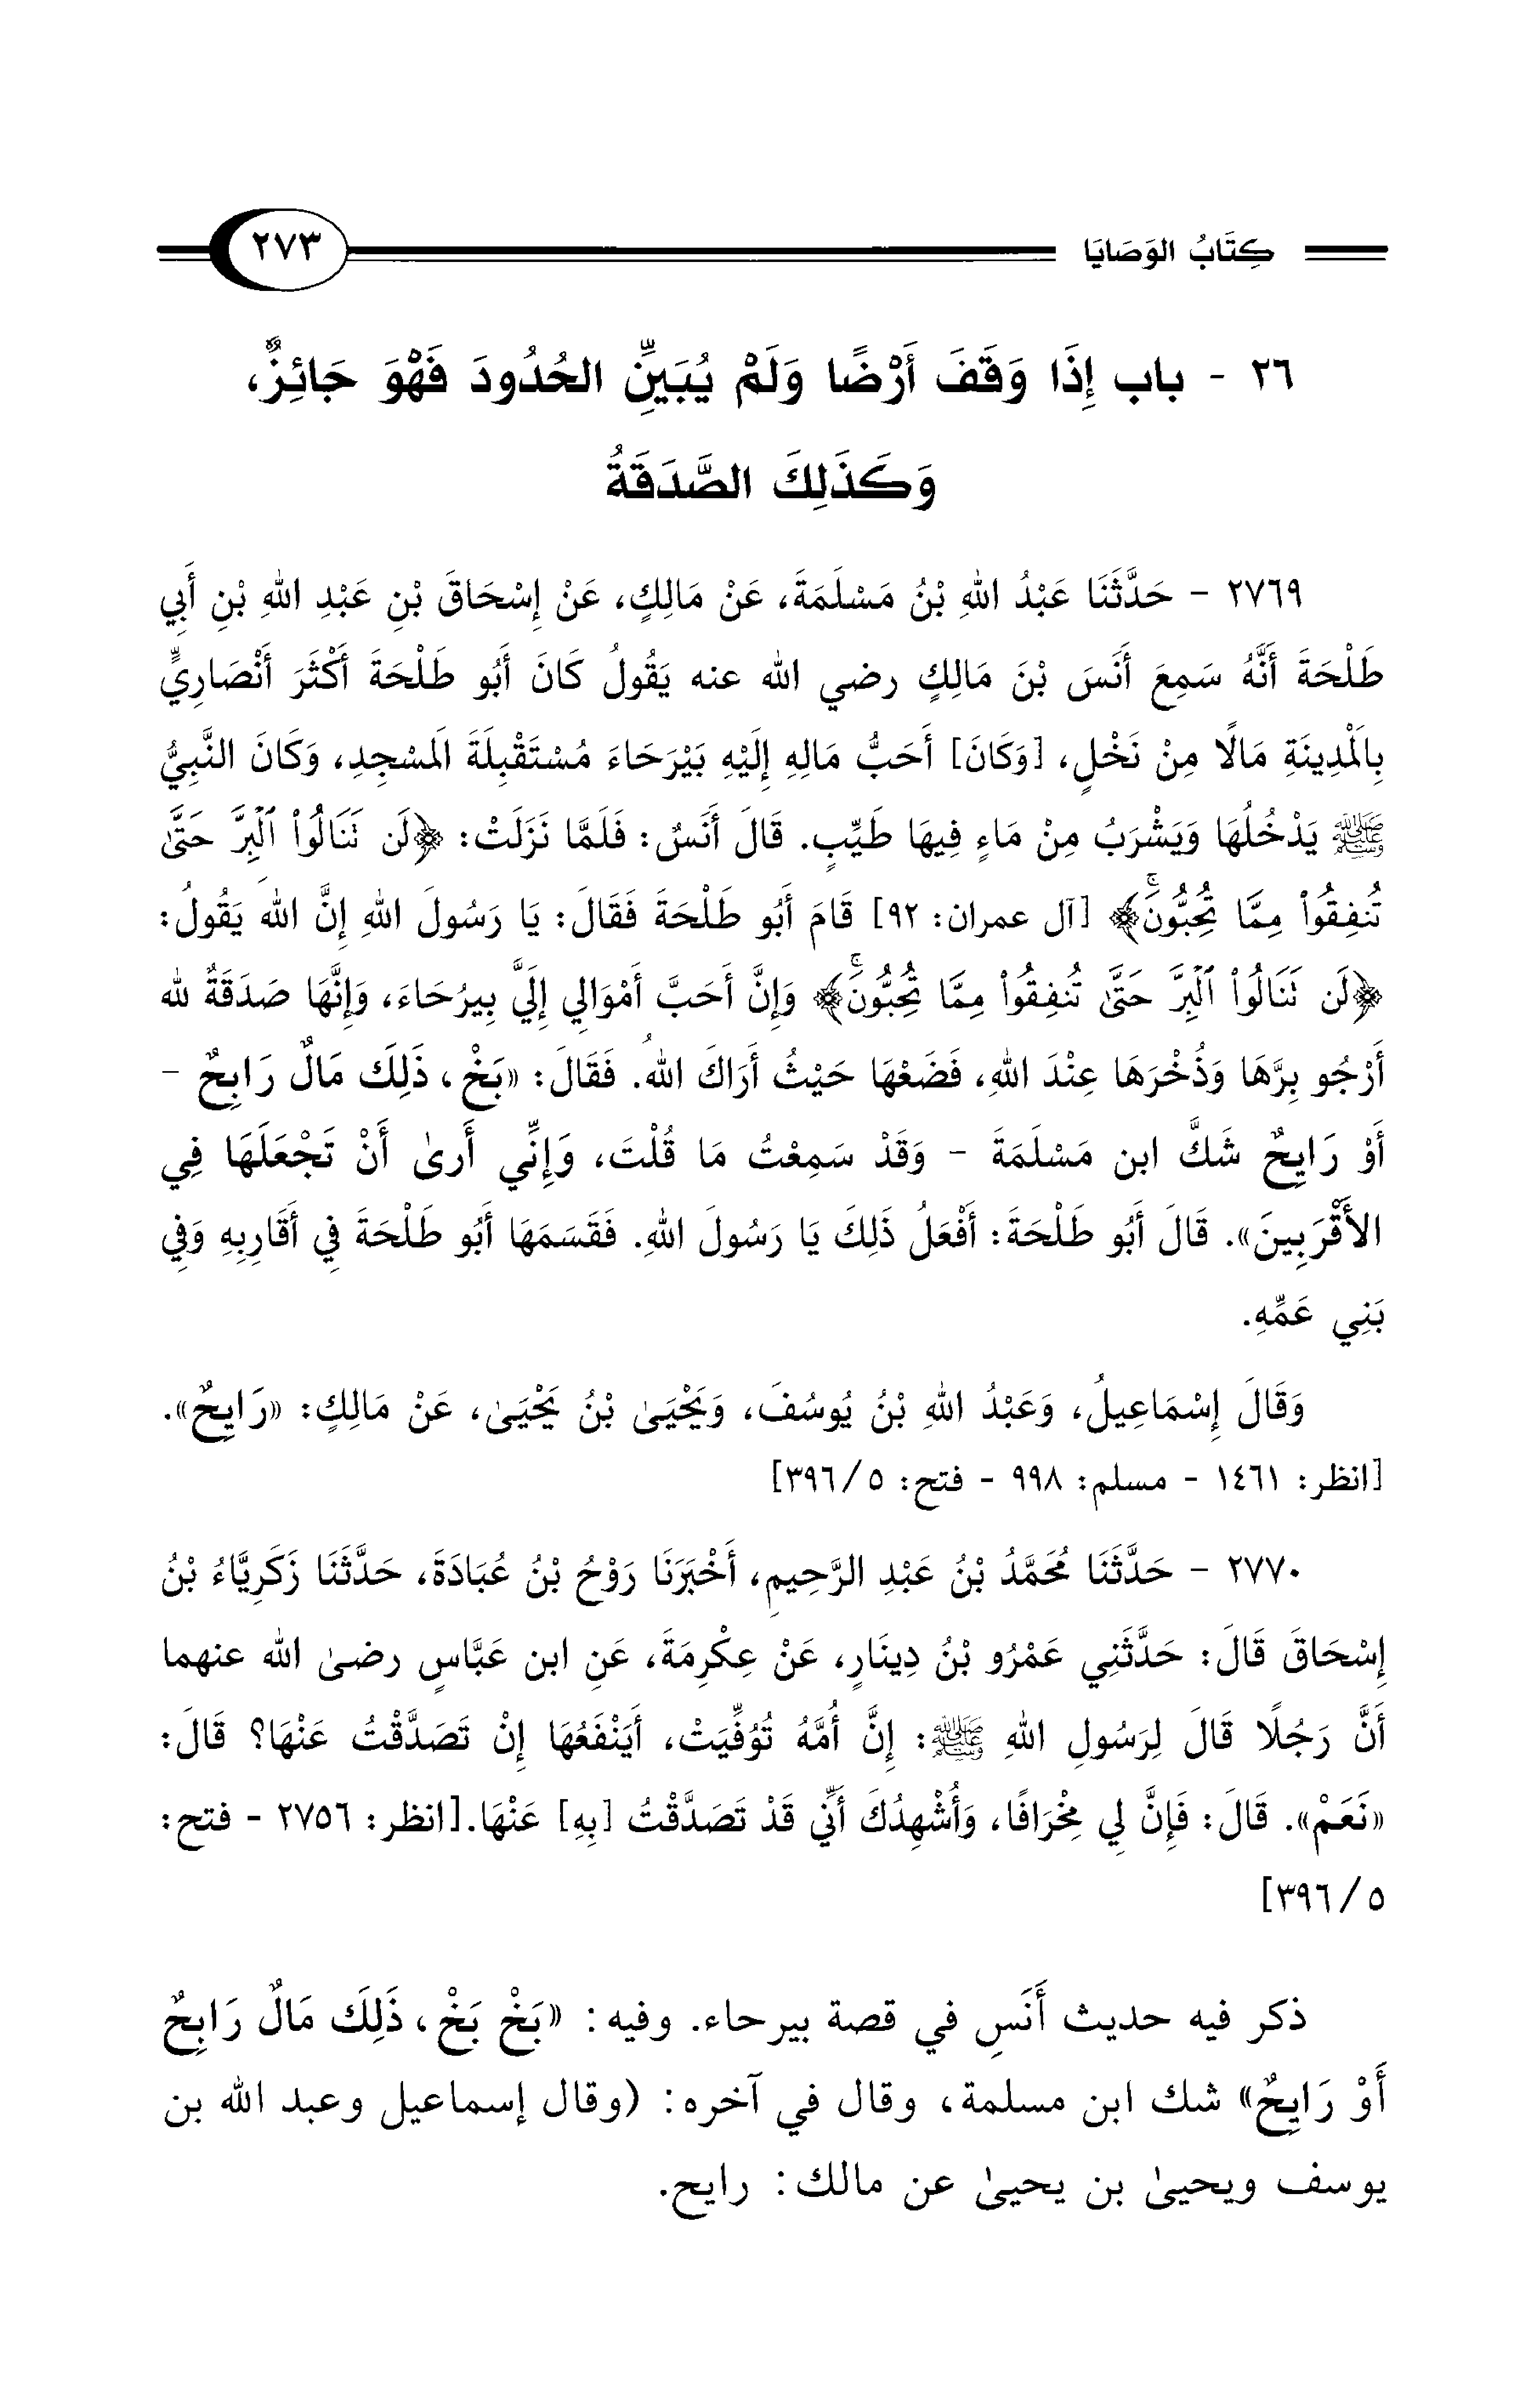 كِتَابُ الوَصَايَا
٢٧٣
٢٦ - باب إِذَا وَقَفَ أَرْضًا وَلَمْ يُبَيِّنِ الحُدُودَ فَهْوَ جَائِزٌ،
وَكَذَلِكَ الصَّدَقَةُ
٢٧٦٩ - حَدَّثَنَا عَبْدُ اللهِ بْنُ مَسْلَمَةَ، عَنْ مَالِكٍ، عَنْ إِسْحَاقَ بْنِ عَبْدِ اللهِ بْنِ أَبِي
طَلْحَةَ أَنَّهُ سَمِعَ أَنَسَ بْنَ مَالِكٍ رضي الله عنه يَقُولُ كَانَ أَبُو طَلْحَةَ أَكْثَرَ أَنْصَارِيٍّ
بِالْمَدِينَةِ مَالًا مِنْ نَخْلٍ، [وَكَانَ] أَحَبُّ مَالِهِ إِلَيْهِ بَيْرَحَاءَ مُسْتَقْبِلَةَ الَمسْجِدِ، وَكَانَ النَّبِيُّ
ﷺ يَدْخُلُهَا وَيَشْرَبُ مِنْ مَاءٍ فِيهَا طَيِّبٍ. قَالَ أَنَسٌ: فَلَمَّا نَزَلَتْ: ﴿لَن تَنَالُواْ ٱلْبِرَّ حَتَّىٰ
تُنفِقُواْ مِمَّا تُحِبُّونَۚ﴾ [آل عمران: ٩٢] قَامَ أَبُو طَلْحَةَ فَقَالَ: يَا رَسُولَ اللهِ إِنَّ اللهَ يَقُولُ:
﴿لَن تَنَالُواْ ٱلْبِرَّ حَتَّىٰ تُنفِقُواْ مِمَّا تُحِبُّونَۚ﴾ وَإِنَّ أَحَبَّ أَمْوَالِي إِلَيَّ بِيرُحَاءَ، وَإِنَّهَا صَدَقَةٌ لله
أَرْجُو بِرَّهَا وَذُخْرَهَا عِنْدَ اللهِ، فَضَعْهَا حَيْثُ أَرَاكَ اللهُ. فَقَالَ: «بَخْ، ذَلِكَ مَالٌ رَابِحٌ -
أَوْ رَايِحٌ شَكَّ ابن مَسْلَمَةَ - وَقَدْ سَمِعْتُ مَا قُلْتَ، وَإِنِّي أَرىٰ أَنْ تَجْعَلَهَا فِي
الأَقْرَبِينَ». قَالَ أَبُو طَلْحَةَ: أَفْعَلُ ذَلِكَ يَا رَسُولَ اللهِ. فَقَسَمَهَا أَبُو طَلْحَةَ فِي أَقَارِبِهِ وَفِي
بَنِي عَمِّهِ.
وَقَالَ إِسْمَاعِيلُ، وَعَبْدُ اللهِ بْنُ يُوسُفَ، وَيَحْيَىٰ بْنُ يَحْيَىٰ، عَنْ مَالِكٍ: «رَايِحٌ».
[انظر: ١٤٦١ - مسلم: ٩٩٨ - فتح: ٥/ ٣٩٦]
٢٧٧٠ - حَدَّثَنَا مُحَمَّدُ بْنُ عَبْدِ الرَّحِيمِ، أَخْبَرَنَا رَوْحُ بْنُ عُبَادَةَ، حَدَّثَنَا زَكَرِيَّاءُ بْنُ
إِسْحَاقَ قَالَ: حَدَّثَنِي عَمْرُو بْنُ دِينَارٍ، عَنْ عِكْرِمَةَ، عَنِ ابن عَبَّاسٍ رضىٰ الله عنهما
أَنَّ رَجُلًا قَالَ لِرَسُولِ اللهِ ﷺ: إِنَّ أُمَّهُ تُوُفِّيَتْ، أَيَنْفَعُهَا إِنْ تَصَدَّقْتُ عَنْهَا؟ قَالَ:
«نَعَمْ». قَالَ: فَإِنَّ لِي مِخْرَافًا، وَأُشْهِدُكَ أَنِّي قَدْ تَصَدَّقْتُ [بِهِ] عَنْهَا.[انظر: ٢٧٥٦ - فتح:
٥/ ٣٩٦]
ذكر فيه حديث أَنَسِ في قصة بيرحاء. وفيه: «بَخْ بَخْ، ذَلِكَ مَالٌ رَابِحٌ
أَوْ رَايِحٌ» شك ابن مسلمة، وقال في آخره: (وقال إسماعيل وعبد الله بن
يوسف ويحيىٰ بن يحيىٰ عن مالك: رايح.